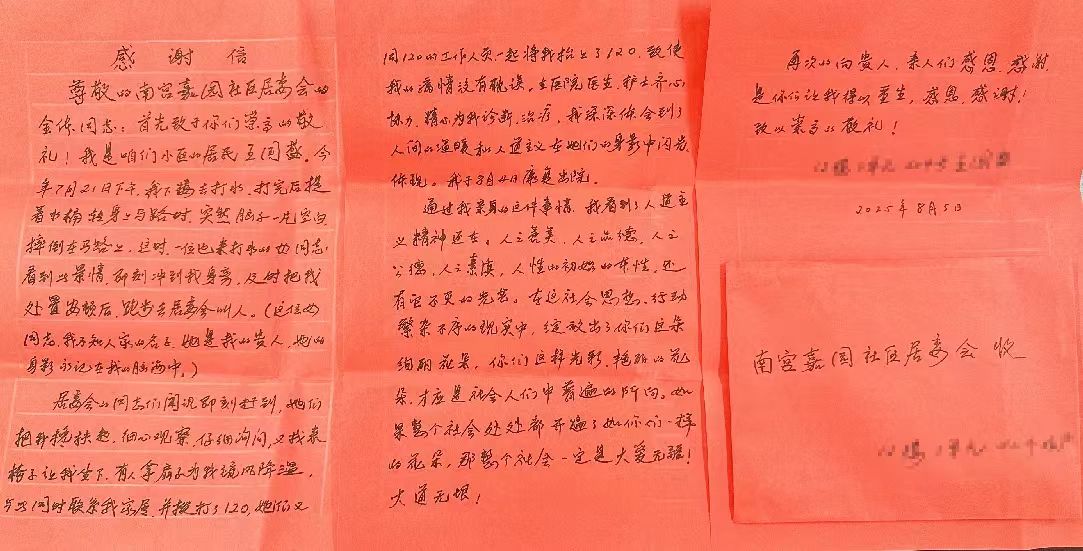 感谢信
尊敬的南宫嘉园社区居委会的
全体同志：首先致于你们崇高的敬
礼！我是咱们小区的居民王国，今
年7月21日下午，我下楼去打水，打完后提
着水桶转身上马路时，突然脑子一片空白
摔倒在马路上，这时，一位也来打水的女同志
看到此景情，即刻冲到我身旁，及时把我
处置安顿后，跑步去居委会叫人。（这位女
同志，我不知人家的名子，她是我的贵人，她的
身影永记在我的脑海中。）
居委会的同志们闻讯即刻赶到，她们
把我搀扶起，细心观察，仔细询问，又找来
椅子让我坐下，有人拿扇子为我扇风降温，
与此同时联系我家属，并拨打了120，她们又
同120的工作人员一起将我抬上了120，致使
我的病情没有耽误，在医院医生、护士齐心
协力，精心为我诊断、治疗，我深深体会到了
人间的温暖和人道主义在她们的身影中闪光
体现。我于8月4日康复出院。
通过我亲身的这件事情，我看到了人道主
义精神还在。人之善美，人之品德，人之
公德，人之素质，人性的初始的本性，还
有它不灭的光芒。在这社会思想、行动
繁杂不序的现实中，绽放出了你们这朵
绚丽花朵，你们这样光彩、艳丽的花
朵，才应是社会人们中普遍的所向。如
果整个社会处处都开遍了如你们一样
的花朵，那整个社会一定是大爱无疆！
大道无垠！
再次的向贵人、亲人们感恩、感谢
是你们让我得以重生，感恩、感谢！
致以崇高的敬礼！
2025年8月5日
南宫嘉园社区居委会收